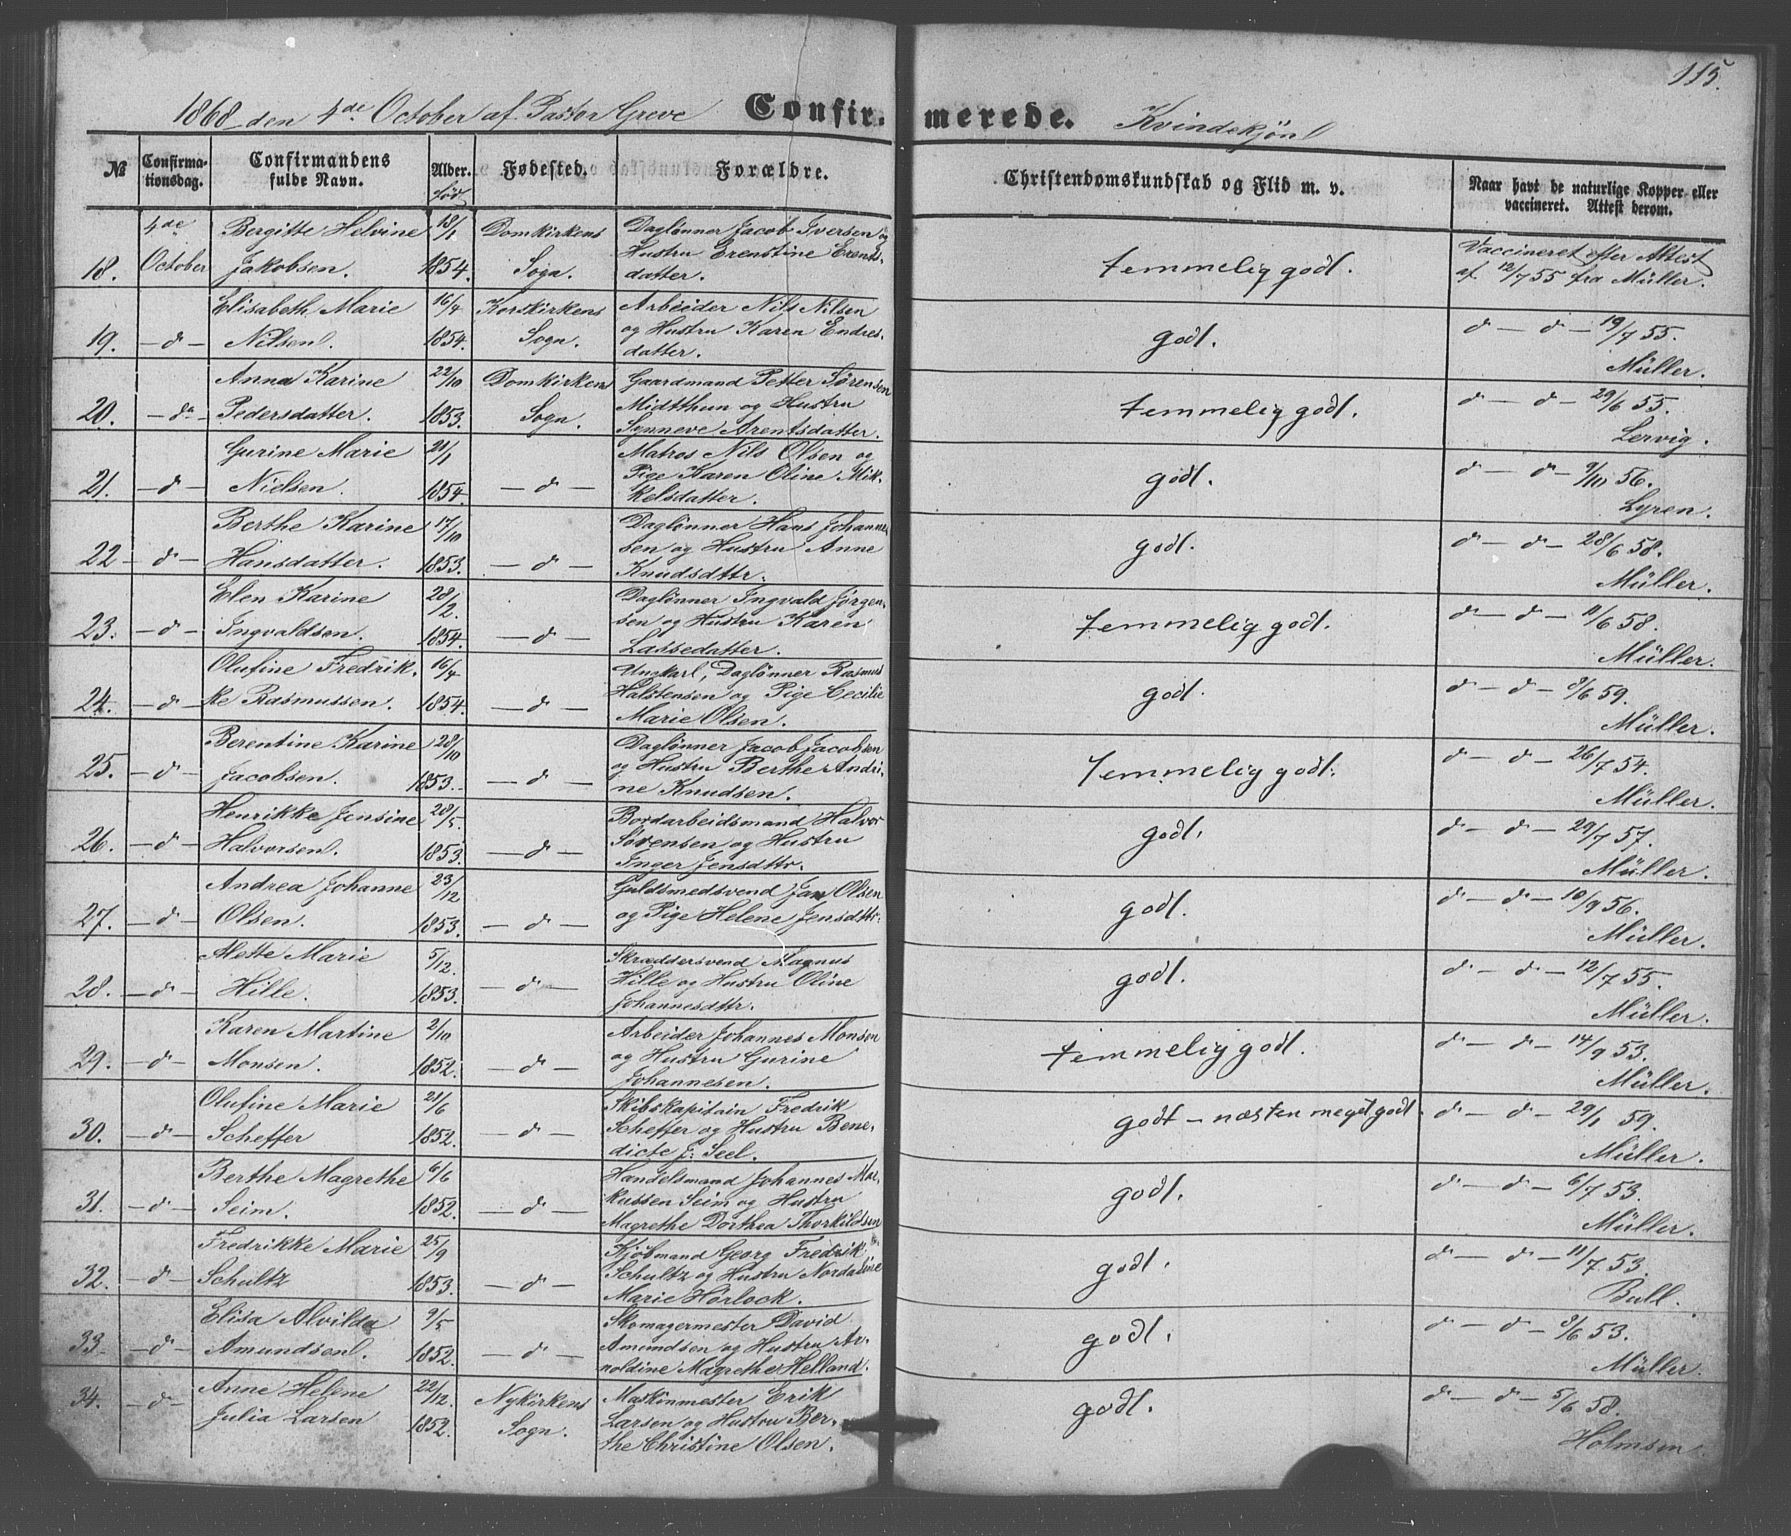 115.
1868 den 4de October af Pastor Greve Confirmerede. Kvindekjøn
№ Confirmationsdag. Confirmandens fulde Navn. Alder. født Fødested. Forældre. Christendomskundskab og Flid m. v. Naar havt de naturlige Kopper eller vaccineret. Attest derom.
4de Bergitte Helvine 18/1 Domkirkens Daglønner Jacob Iversen og
18. October Jakobsen. 1854. Sogn. Hustru Erenstine Erents-
datter. temmelig godt. Vaccineret efter Attest
af 12/7 55 fra Müller.
Elisabeth Marie 16/4 Korskirkens Arbeider Nils Nilsen
19. -d- Nilsen. 1854. Sogn. og Hustru Karen Endres-
datter. godt. d - d - 19/7 55.
Müller.
Anna Karine 22/10 Domkirkens Gaardmand Petter Sørensen
20. -do- Pedersdatter. 1853. Sogn. Midtthun og Hustru
Synneve Arentsdatter. temmelig godt. d - d - 29/6 55.
Lervig.
Gurine Marie 21/1 Matros Nils Olsen og
21. -d- Nielsen. 1854. -d- Pige Karen Oline Mik-
kelsdatter. godt. d - d - 9/10 56.
Lyren.
Berthe Karine 17/10 Daglønner Hans Johanne-
22 -d- Hansdatter. 1853. -d- sen og Hustru Anne
Knudsdttr. godt. d - d - 28/6 58.
Müller.
Elen Karine 28/2. Daglønner Ingvald Jørgen-
23. -d- Ingvaldsen. 1854. -d- sen og Hustru Karen
Lassedatter. temmelig godt. d - d - 11/6 58.
Müller.
Olufine Fredrik- 16/4 Ungkarl, Daglønner Rasmus
24. -d- ke Rasmussen. 1854. -d- Halstensen og Pige Cecilie
Marie Olsen. godt. d - d - 3/6 59.
Müller.
Berentine Karine 28/10 Daglønner Jacob Jacobsen
25. -d- Jacobsen. 1853. -d- og Hustru Berthe Andri-
ne Knudsen. temmelig godt. d - d - 26/7 54.
Müller.
Henrikke Jensine 28/5. Bordarbeidsmand Halvor
26. -d- Halvorsen. 1853. -d- Sørensen og Hustru
Inger Jensdttr. godt. d - d - 29/7 57.
Müller.
Andrea Johanne 23/12 Guldsmedsvend Jan Olsen
27. -d- Olsen. 1853. -d- og Pige Helene Jensdttr. godt. d - d - 10/9 56.
Müller.
Mette Marie 5/12. Skræddersvend Magnus
28. -d- Hille. 1853. -d- Hille og Hustru Oline
Johannesdttr. godt. d - d - 12/7 55.
Müller.
Karen Martine 2/10 Arbeider Johannes Monsen
29. -d- Monsen. 1852. -d- og Hustru Gurine
Johannesen. temmelig godt. d - d - 14/9 53.
Müller.
Olufine Marie 21/6 Skibskapitain Fredrik
30. -d- Scheffer 1852. -d- Scheffer og Hustru Bene-
dicte f: Seel. godt - næsten meget godt. d - d - 29/1 59.
Müller.
Berthe Magrethe 6/6 Handelsmand Johannes Mar-
31. -d- Seim. 1852. -d- kussen Seim og Hustru
Magrethe Dorthea Thorkildsen godt. d - d - 6/7 53.
Müller.
Fredrikke Marie 25/9 Kjøbmand Georg Fredrik
32. -d- Schultz 1853. -d- Schultz og Hustru Nordaline
Marie Hørlock. godt. d - d - 11/7 53.
Bull.
Elisa Alvilda 9/5 Skomagermester David
33. -d- Amundsen. 1852. -d- Amundsen og Hustru Ar-
noldine Magrethe Helland. godt. d - d - 3/6 53.
Müller.
Anne Helene 22/12. Nykirkens Maskinmester Erik
34. -d- Julia Larsen 1852. Sogn. Larsen og Hustru Ber-
the Christine Olsen. godt. d - d - 5/6 58.
Holmsen.